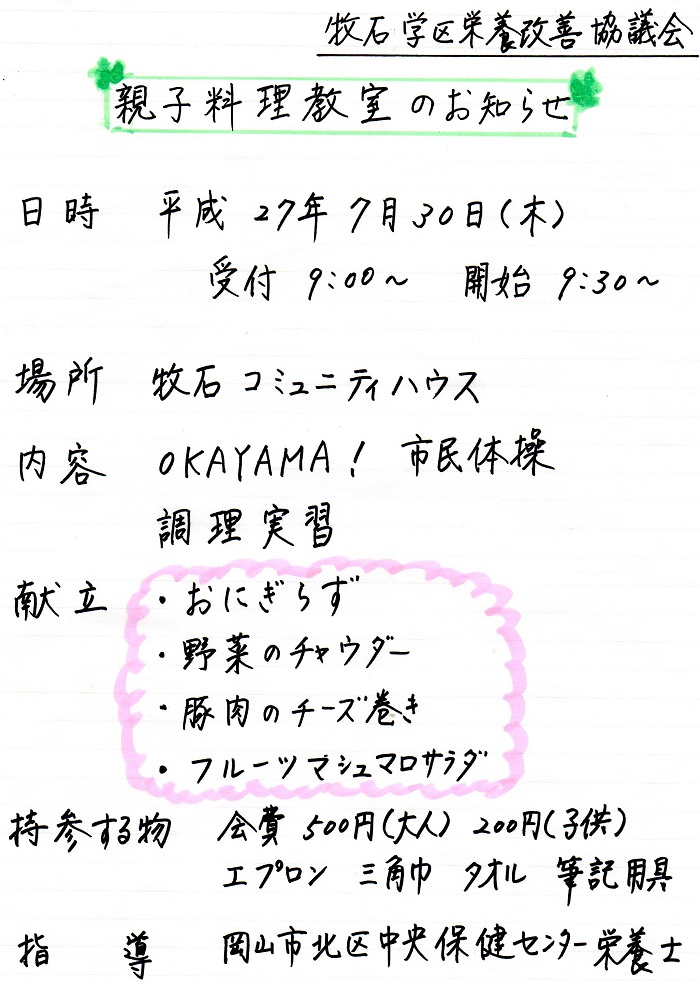 牧石学区栄養改善協議会
親子料理教室のお知らせ
日時 平成 27年 7月 30日(木)
受付 9:00~ 開始 9:30~
場所 牧石コミュニティハウス
内容 OKAYAMA! 市民体操
調理実習
献立 ・おにぎらず
・野菜のチャウダー
・豚肉のチーズ巻き
・フルーツマシュマロサラダ
持参する物 会費 500円(大人) 200円(子供)
エプロン 三角巾 タオル 筆記用具
指導 岡山市北区中央保健センター栄養士